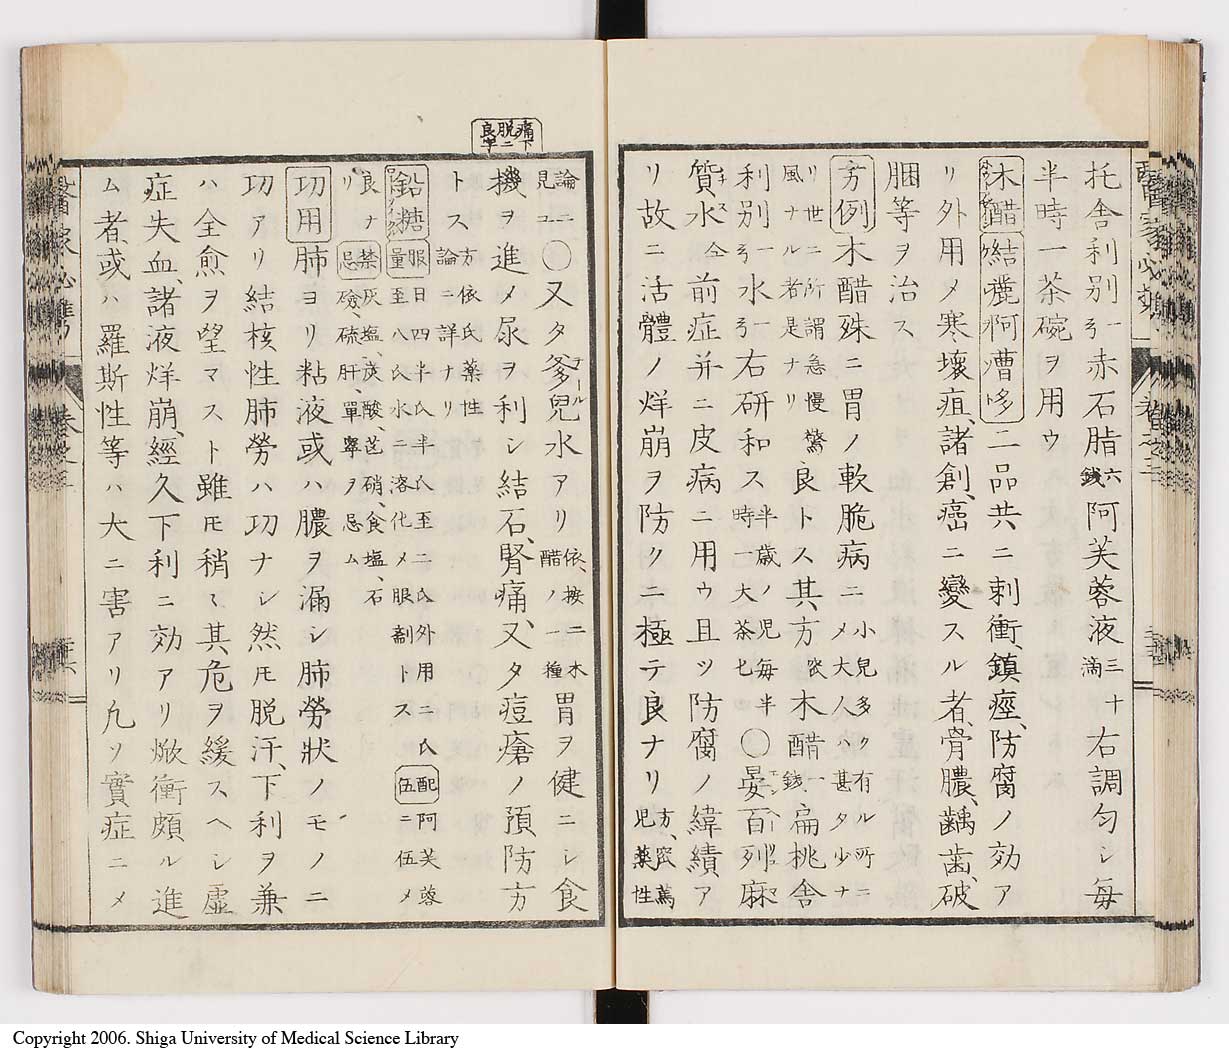 托舎利別 弓一 赤石脂 六錢 阿芙蓉液 三十滴 右調勻シ毎
半時一茶碗ヲ用ウ
木醋 結麗阿曹哆 二品共ニ刺衝、鎮痙、防腐ノ効ア
リ外用メ寒壞疽、諸創、癌ニ變スル者、骨膿、齲歯、破
膕等ヲ治ス
方例 木醋殊ニ胃ノ軟脆病ニ 小兒多ク有ル所ニメ大人ハ甚タ少ナ
リ世ニ所謂急慢驚風ナル者是ナリ 良トス其方 木醋 錢一 扁桃舎
利別 弓一 水 弓一 右研和ス 半歳ノ児毎半時一大茶匕 ○晏百列麻
質水 仝前症并ニ皮病ニ用ウ且ツ防腐ノ緯績ア
リ故ニ活體ノ烊崩ヲ防クニ極テ良ナリ
醫家必携
論ニ見ユ ○又タ爹兒水アリ 依、按ニ木醋ノ一種 胃ヲ健ニシ食
機ヲ進メ尿ヲ利シ結石、腎痛、又タ痘瘡ノ預防方
トス 方依氏藥性論ニ詳ナリ
痛下脱二良字
鉛糖 服量 日四半氏半氏至二氏外用二氏至八氏水ニ溶化メ眼劑トス 配伍 阿芙蓉ニ伍メ
良ナリ 禁忌 灰塩、炭酸、芒硝、食塩、石硷、硫肝、單寧ヲ忌ム
功用 肺ヨリ粘液或ハ膿ヲ漏シ肺勞状ノモノニ
功アリ結核性肺勞ハ功ナシ然モ脱汗、下利ヲ兼
ハ全愈ヲ望マスト雖モ稍々其危ヲ緩スヘシ虚
症失血、諸液烊崩、經久下利ニ効アリ焮衝頗ル進
ム者、或ハ羅斯性等ハ大ニ害アリ凢ソ實症ニメ
醫家必携
Copyright 2006. Shiga University of Medical Science Library